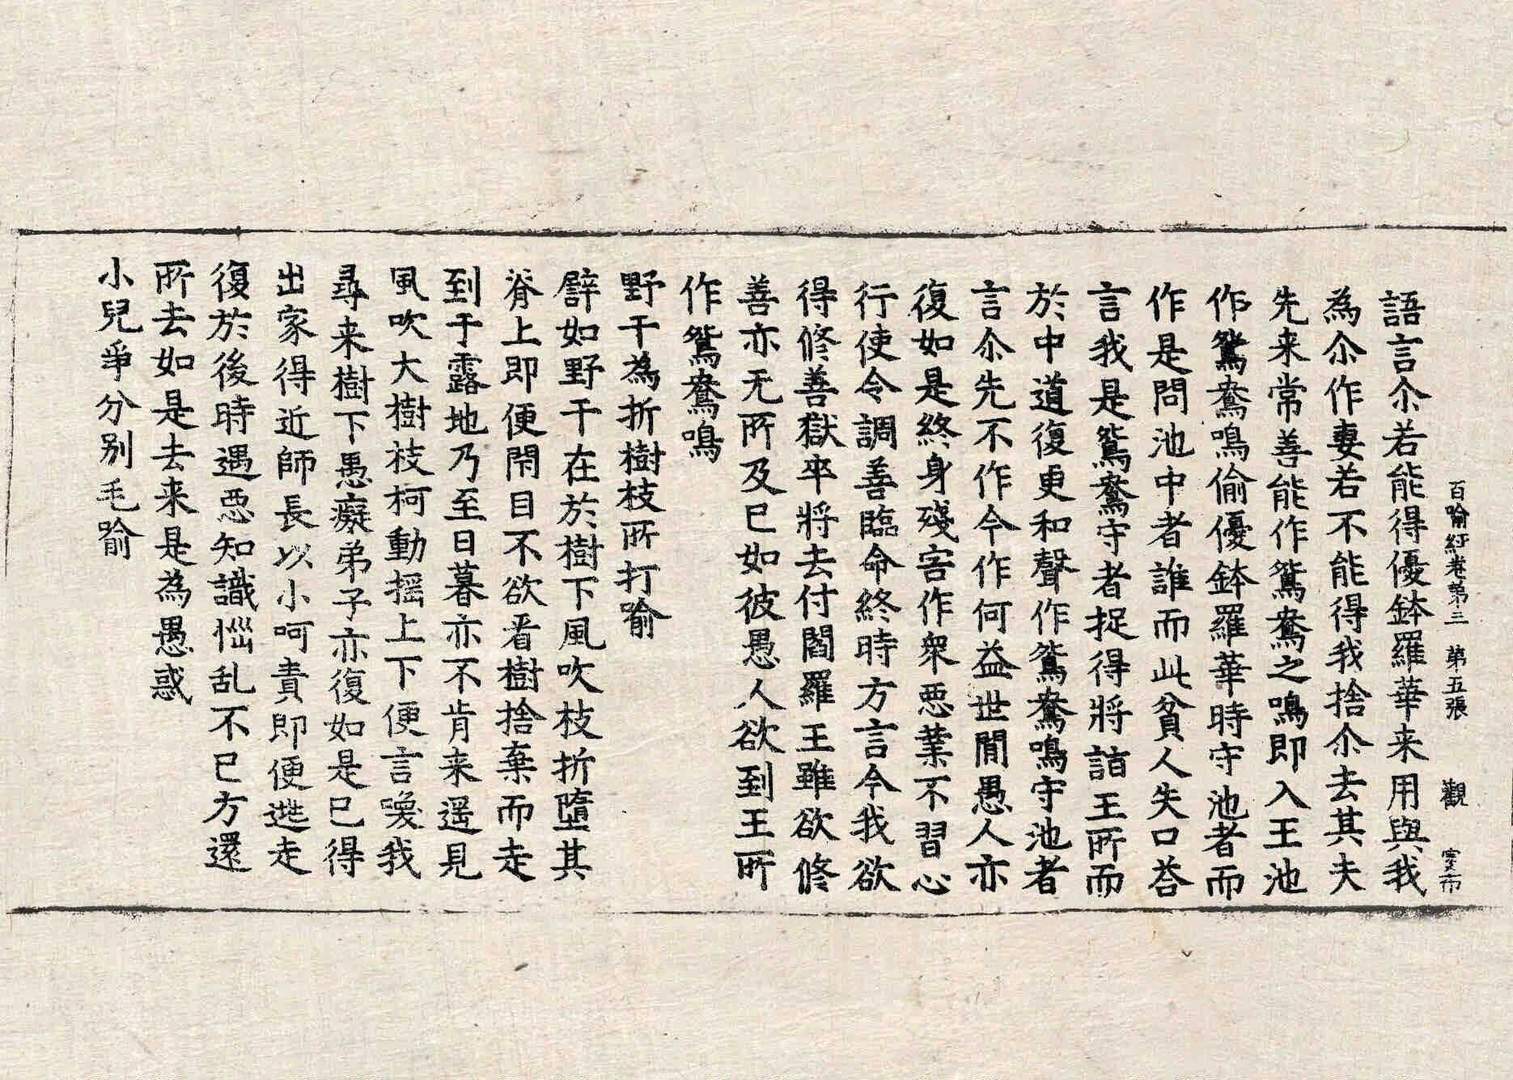 百喻経卷苐三　苐五張　觀
語言尒若能得優鉢羅華来用與我
為尒作妻若不能得我捨尒去其夫
先来常善能作鴛鴦之鳴即入王池
作鴛鴦鳴偷優鉢羅華時守池者而
作是問池中者誰而此貧人失口荅
言我是鴛鴦守者捉得將詣王所而
於中道復更和聲作鴛鴦鳴守池者
言尒先不作今作何益世閒愚人亦
復如是終身殘害作衆惡業不習心
行使令調善臨命終時方言今我欲
得修善獄卒將去付閻羅王雖欲修
善亦无所及已如彼愚人欲到王所
作鴛鴦鳴
野干為折樹枝所打喻
譬如野干在於樹下風吹枝折墮其
脊上即便閇目不欲看樹捨棄而走
到于露地乃至日暮亦不肯来遥見
風吹大樹枝柯動揺上下便言喚我
尋来樹下愚癡弟子亦復如是已得
出家得近師長以小呵責即便逃走
復於後時遇惡知識惱乱不已方還
所去如是去来是為愚惑
小兒爭分別毛喻